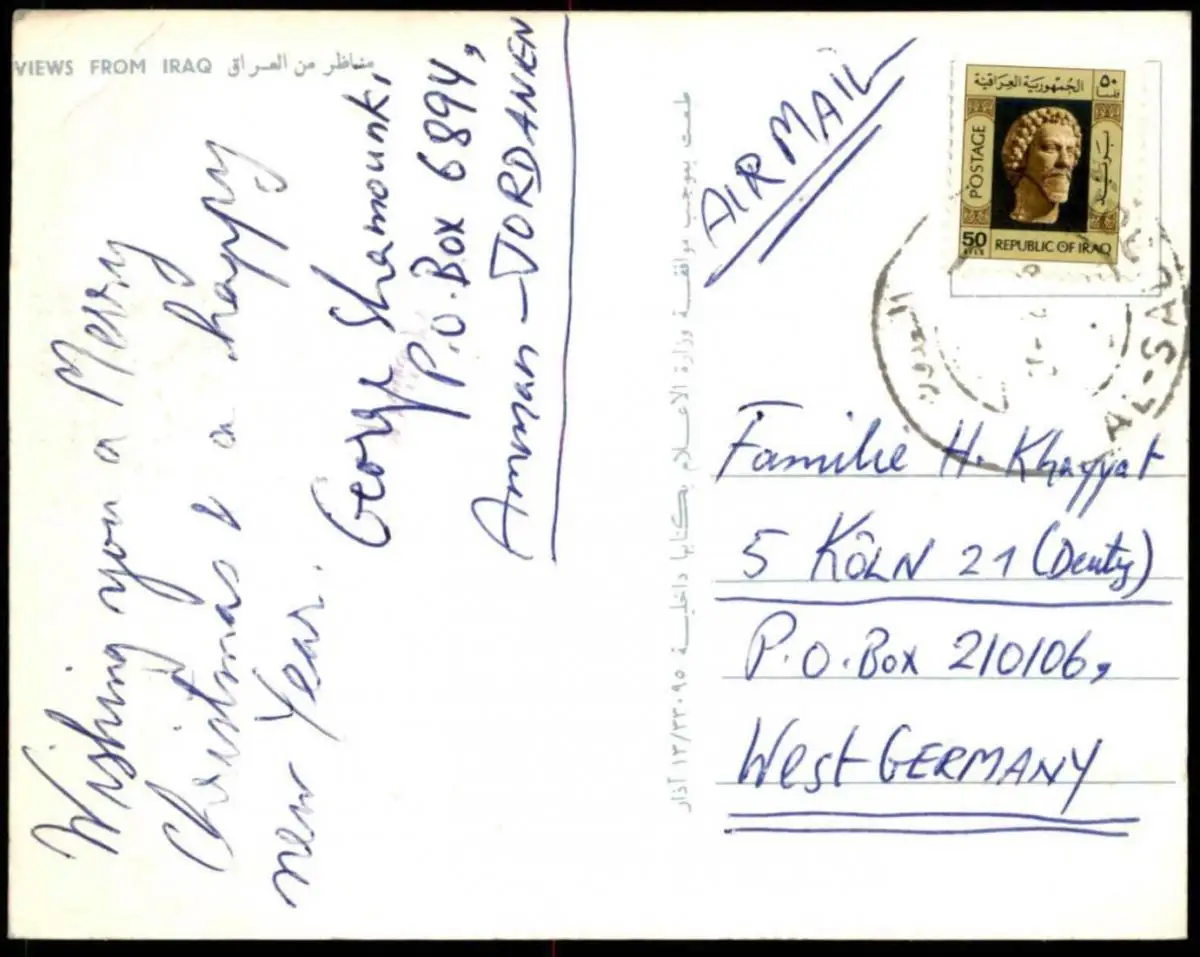 VIEWS FROM IRAQ مناظر من العراق
Wishing you a Merry
Christmas & a happy
new Year.
George Shamounki,
P.O.Box 6894,
Amman-JORDANIEN
طبعت بموجب موافقة وزارة الاعلام بكتابها داخلية ١٣/٣٣٠٩٥ آذار
AIRMAIL
الجمهورية العراقية
٥٠
فلسا
POSTAGE
بريد
50
FILS
REPUBLIC OF IRAQ
AL-SA
Familie H. Khayyat
5 KÖLN 21 (Deutz)
P.O.Box 210106,
West GERMANY